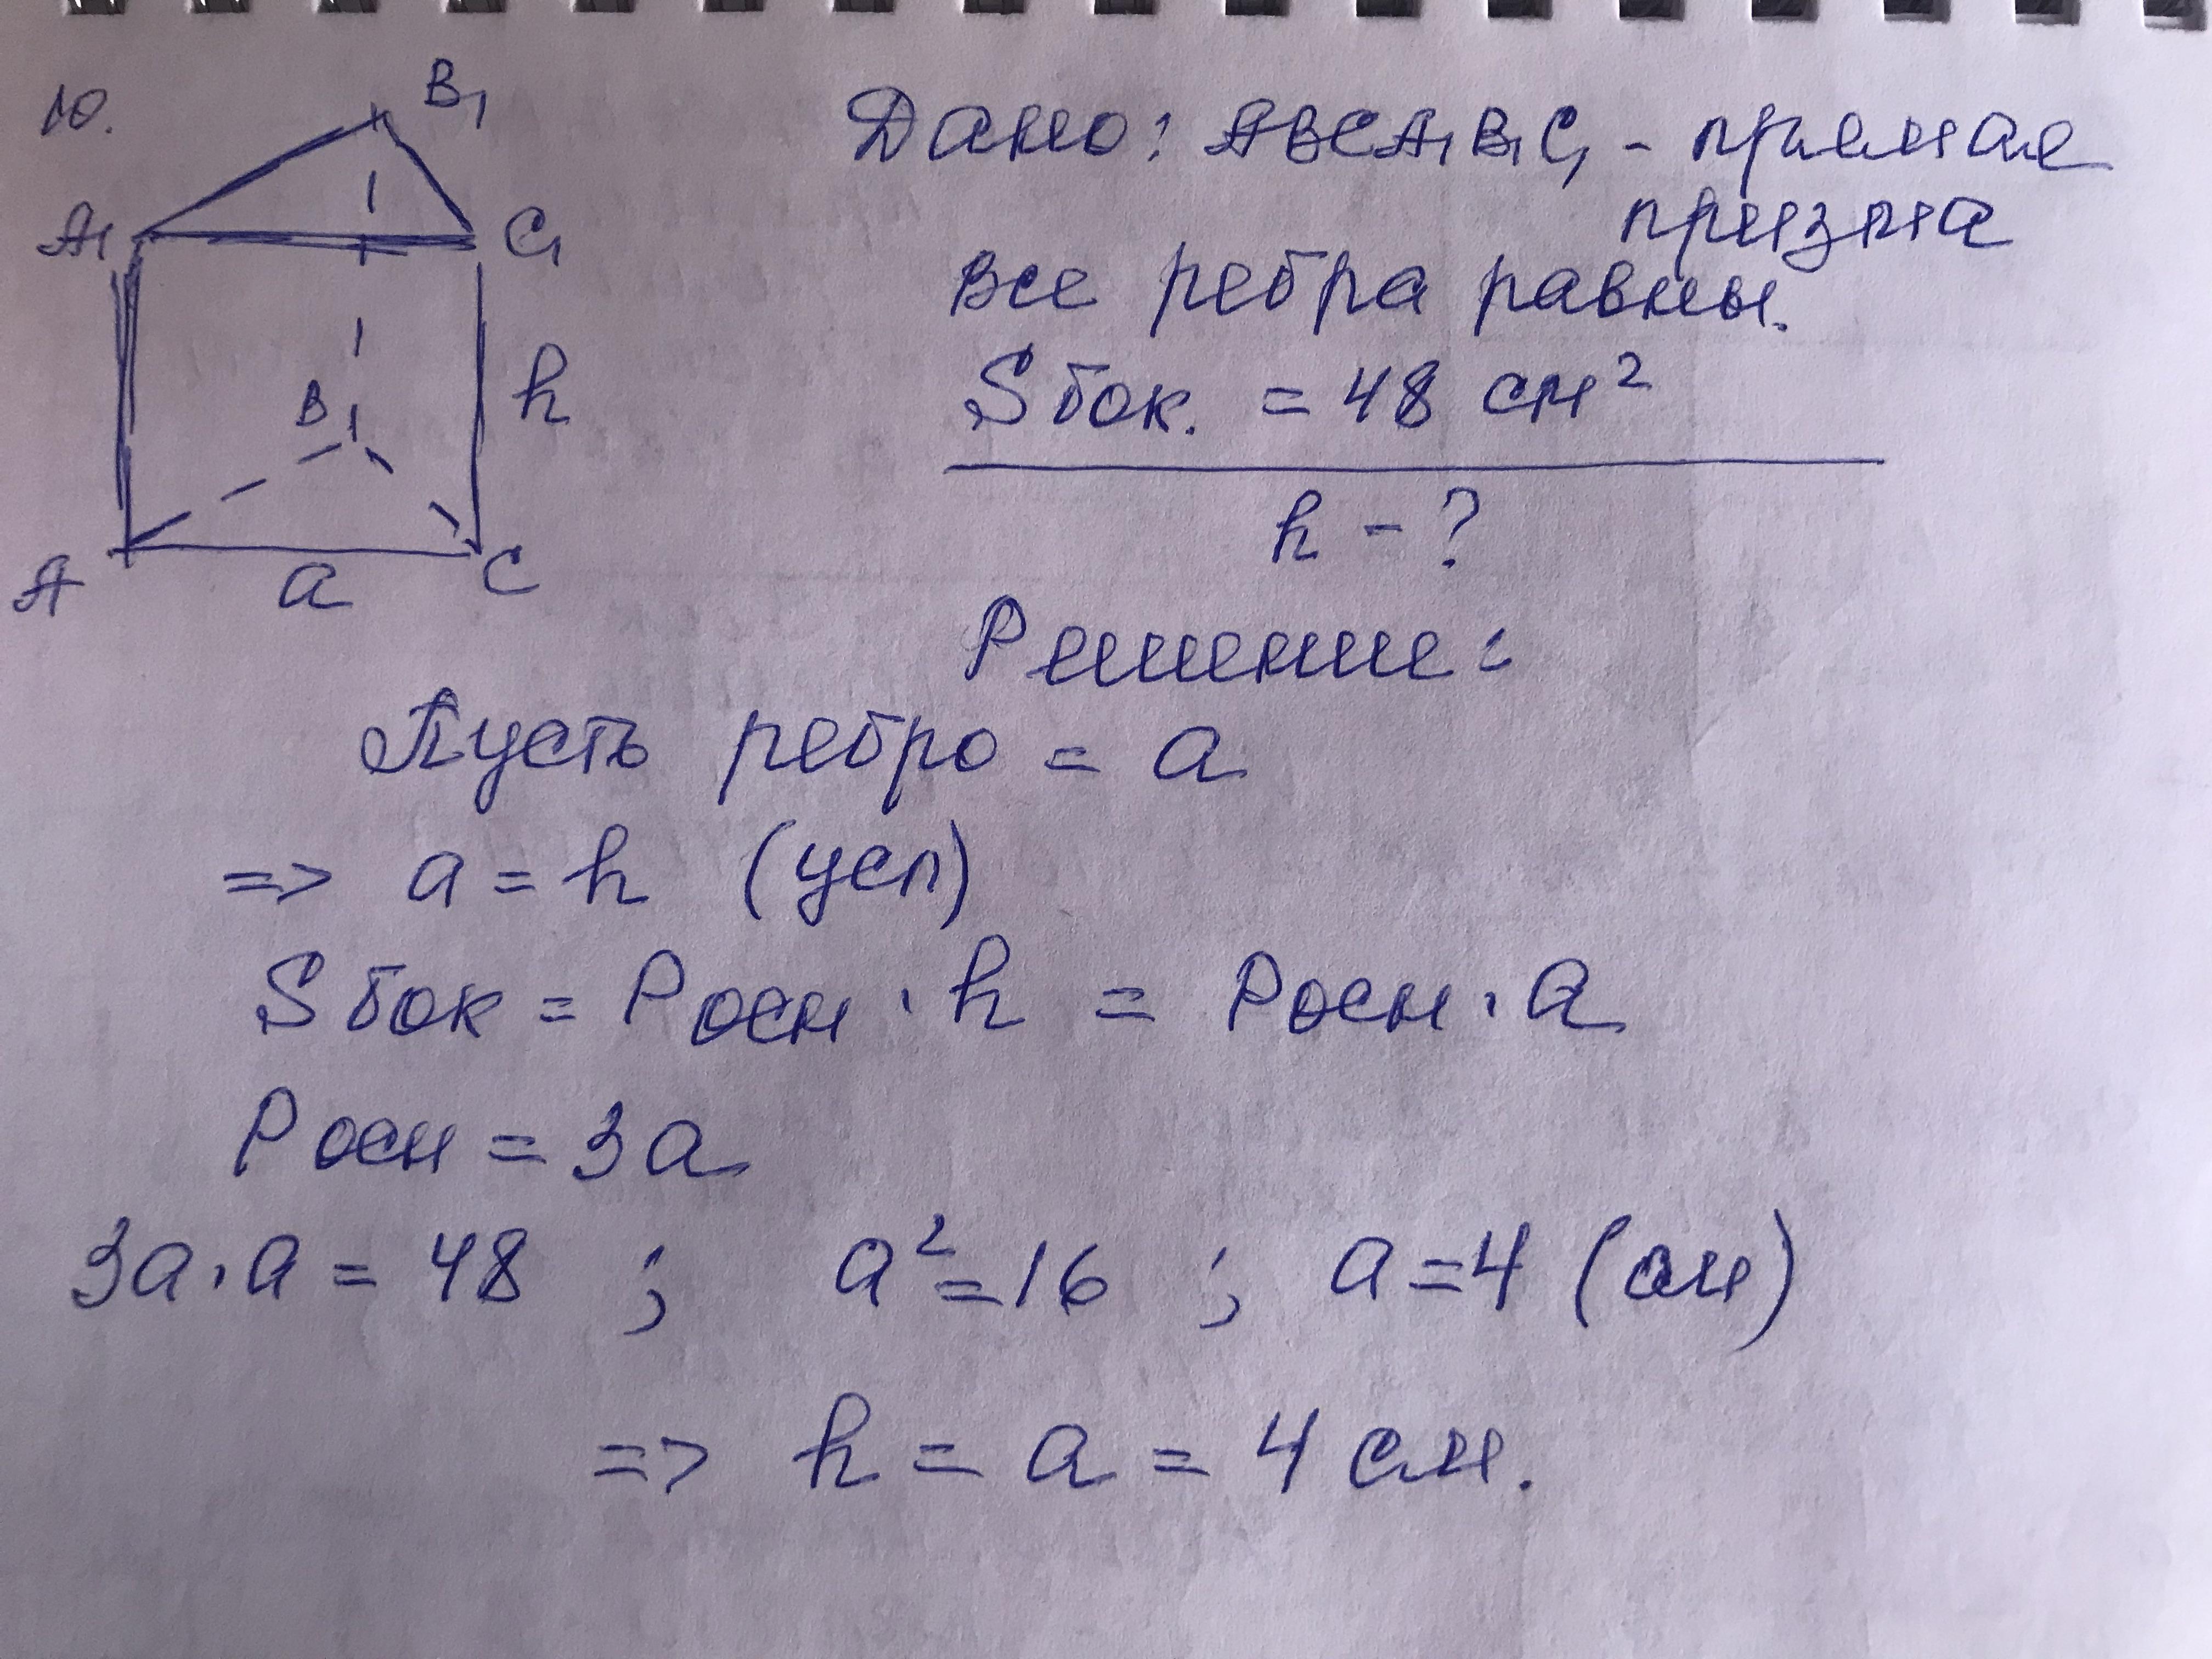 10.
B₁
A₁
C₁
h
B
A
a
C
Дано: ABCA₁B₁C₁ - прямая
призма
Все ребра равны.
Sбок. = 48 см²
h - ?
Решение:
Пусть ребро = a
=> a = h (усл)
Sбок = Pосн · h = Pосн · a
Pосн = 3a
3a · a = 48 ; a² = 16 ; a = 4 (см)
=> h = a = 4 см.